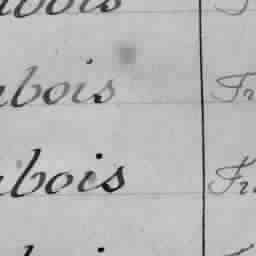 ubois
ubois Fr
ubois Fr